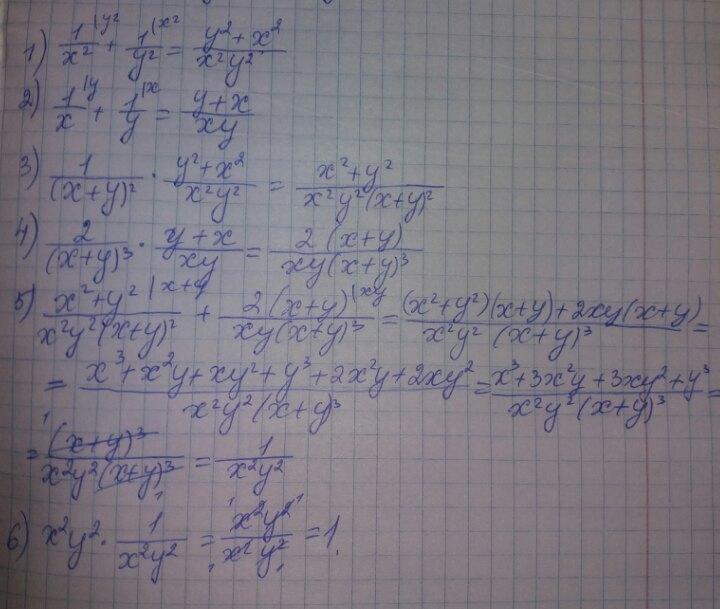 1) 1/x² |y² + 1/y² |x² = (y² + x²)/(x²y²)
2) 1/x |y + 1/y |x = (y + x)/(xy)
3) 1/(x+y)² · (y² + x²)/(x²y²) = (x² + y²)/(x²y²(x+y)²)
4) 2/(x+y)³ · (y + x)/(xy) = 2(x+y)/(xy(x+y)³)
5) (x² + y²)/(x²y²(x+y)²) |x+y + 2(x+y)/(xy(x+y)³) |xy = ((x² + y²)(x+y) + 2xy(x+y))/(x²y²(x+y)³) =
= (x³ + x²y + xy² + y³ + 2x²y + 2xy²)/(x²y²(x+y)³) = (x³ + 3x²y + 3xy² + y³)/(x²y²(x+y)³) =
= (x+y)³/(x²y²(x+y)³) = 1/(x²y²)
6) x²y² · 1/(x²y²) = x²y²/(x²y²) = 1.